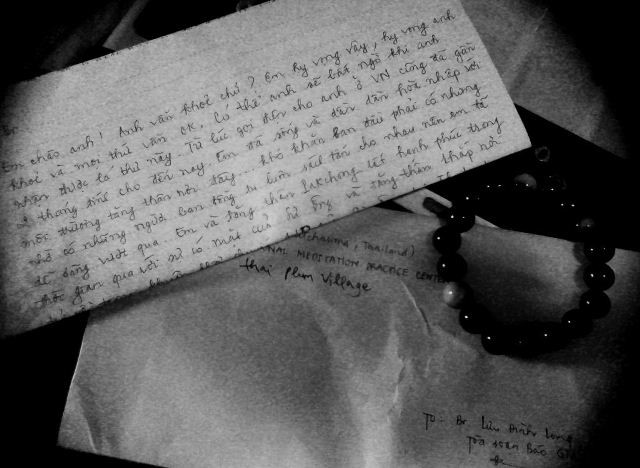 Br.
Em chào anh! Anh vẫn khoẻ chứ? Em hy vọng vậy, hy vọng anh
khoẻ và mọi thứ vẫn OK. Có thể anh sẽ bất ngờ khi anh
nhận được lá thư này. Từ lúc gởi cho anh ở VN cũng đã gần
2 tháng cho đến nay. Em đã sống và dần dần hoà nhập với
môi trường tăng thân nơi đây... khó khăn ban đầu phải có nhưng
nhờ có những người bạn đồng tu luôn sách tấn cho nhau nên em đã
dễ dàng vượt qua. Em và tăng thân Pakchong rất hạnh phúc trong
thời gian qua với sự có mặt của Sư Ông và tăng thân khắp nơi.
Thailand)
NAL MEDITATION PRACTICE CENTER
thai Plum Village
To: Br Lưu Đình Long
Toà soạn Báo